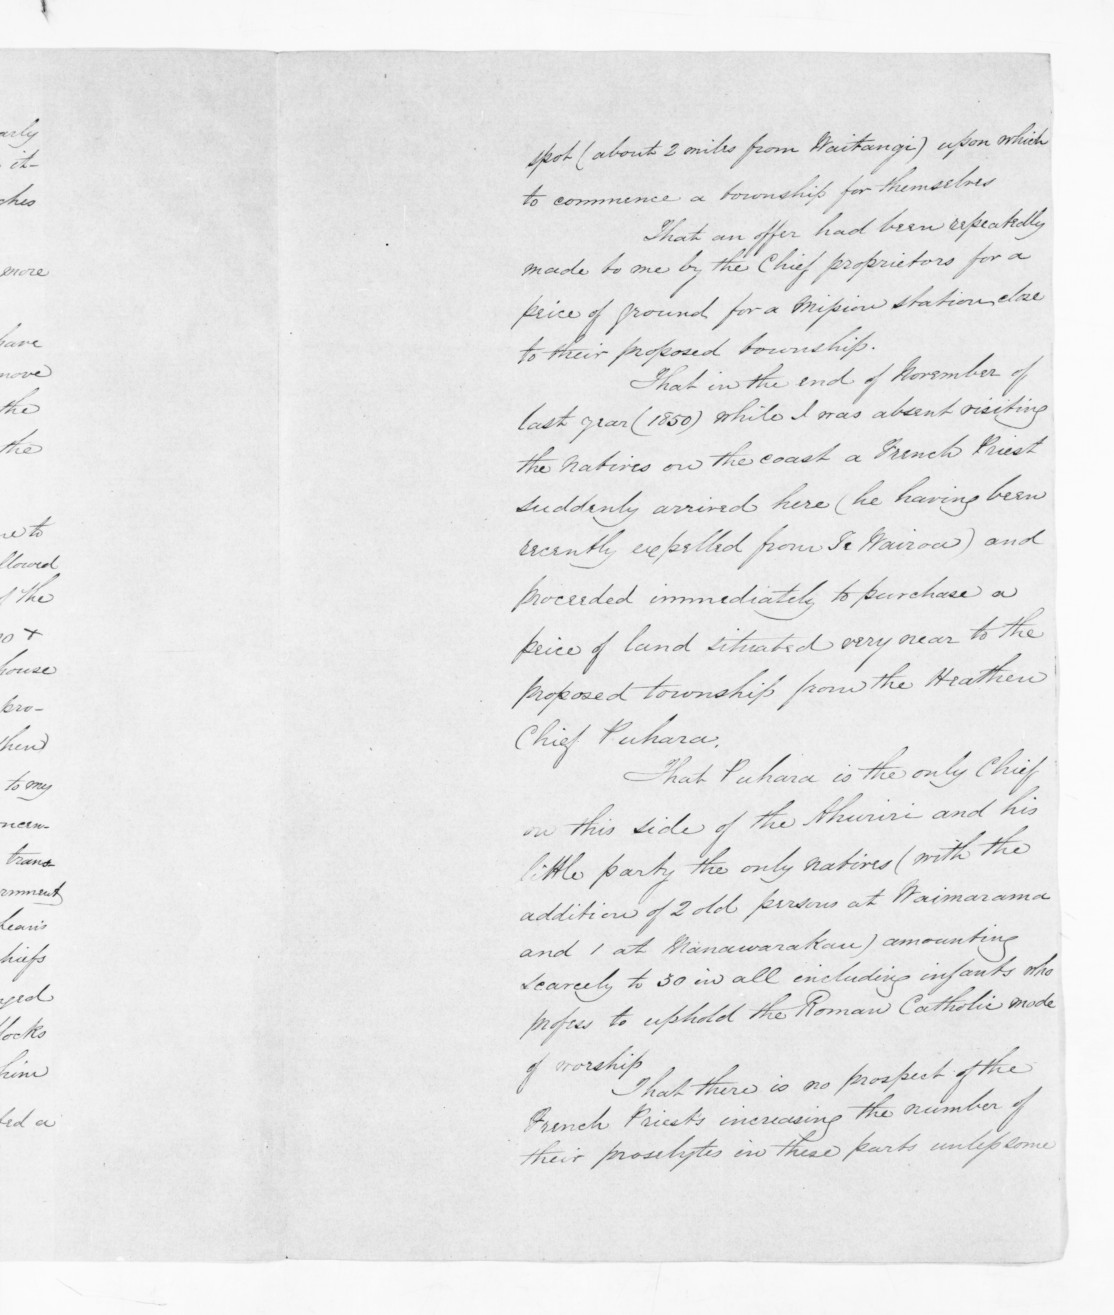 arly
it-
ches
more
have
move
the
the
me to
llowed
f the
no +
house
pro-
then
to my
oncer-
trans-
ernment
hiefs
nged
locks
him
ted a
spot (about 2 miles from Waitangi) upon which
to commence a township for themselves
That an offer had been repeatedly
made to me by the Chief proprietors for a
peice of ground for a Mission station close
to their proposed township.
That in the end of November of
last year (1850) while I was absent visiting
the natives on the coast a French Priest
suddenly arrived here (he having been
recently expelled from Te Wairoa) and
proceeded immediately to purchase a
peice of land situated very near to the
proposed township from the Heathen
Chief Puhara.
That Puhara is the only Chief
on this side of the Ahuriri and his
little party the only natives (with the
addition of 2 old persons at Waimarama
and 1 at Manawarakau) amounting
scarcely to 30 in all including infants who
profess to uphold the Roman Catholic mode
of worship
That there is no prospect of the
French Priests increasing the number of
their proselytes in these parts unless some